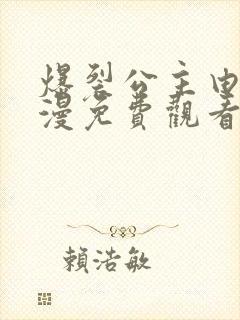 爆裂公主由
漫免費觀看
賴浩敏